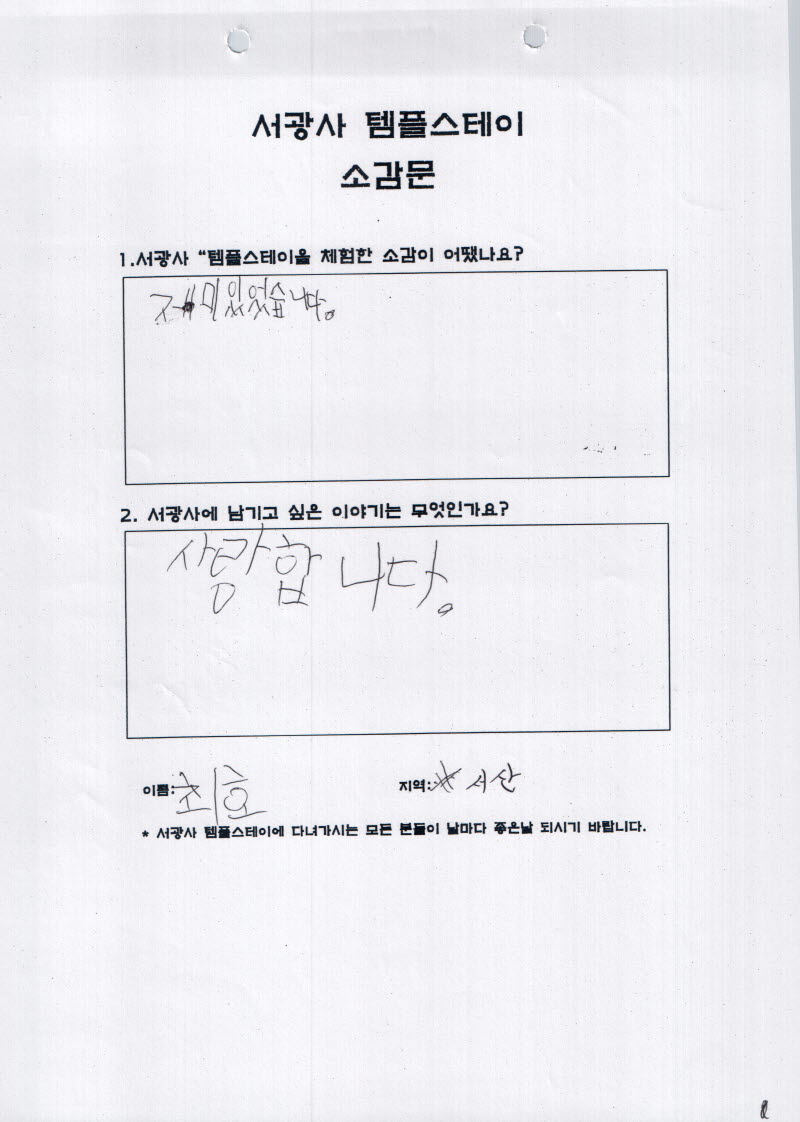 서광사 템플스테이
소감문
1.서광사 “템플스테이을 체험한 소감이 어땠나요?
재미있었습니다.
2. 서광사에 남기고 싶은 이야기는 무엇인가요?
사랑합니다.
이름: 최호 지역: 서산
* 서광사 템플스테이에 다녀가시는 모든 분들이 날마다 좋은날 되시기 바랍니다.